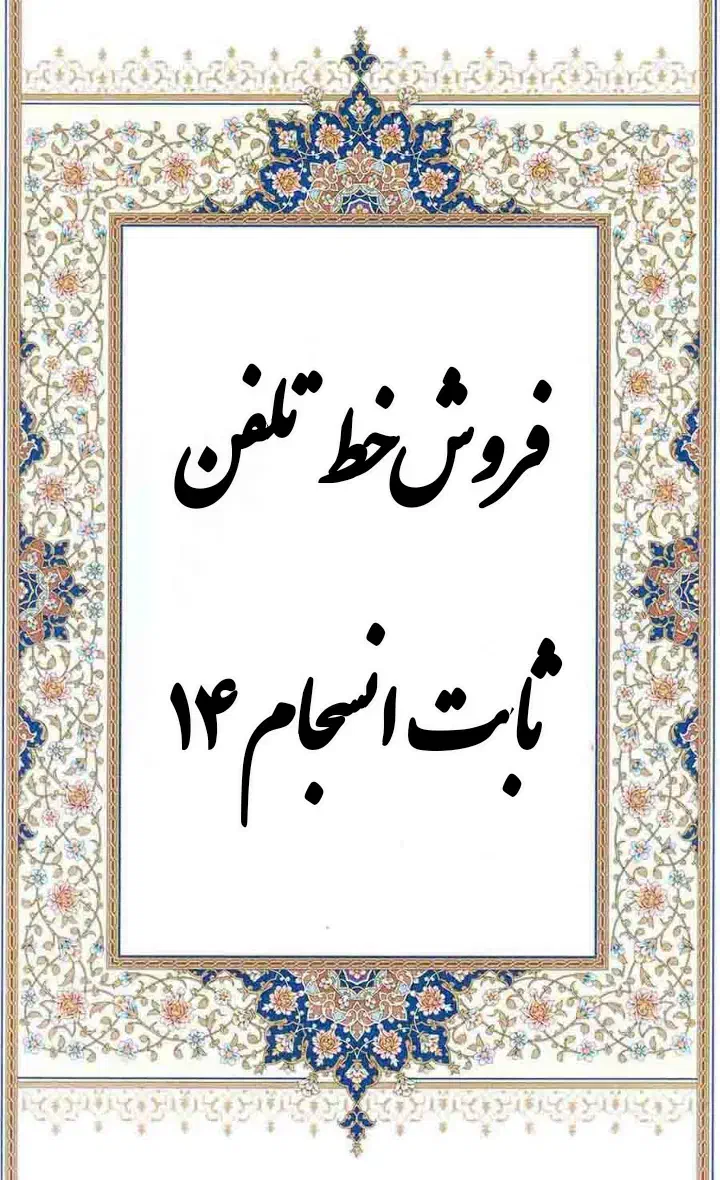 فروش خط تلفن
ثابت انسجام ۱۴